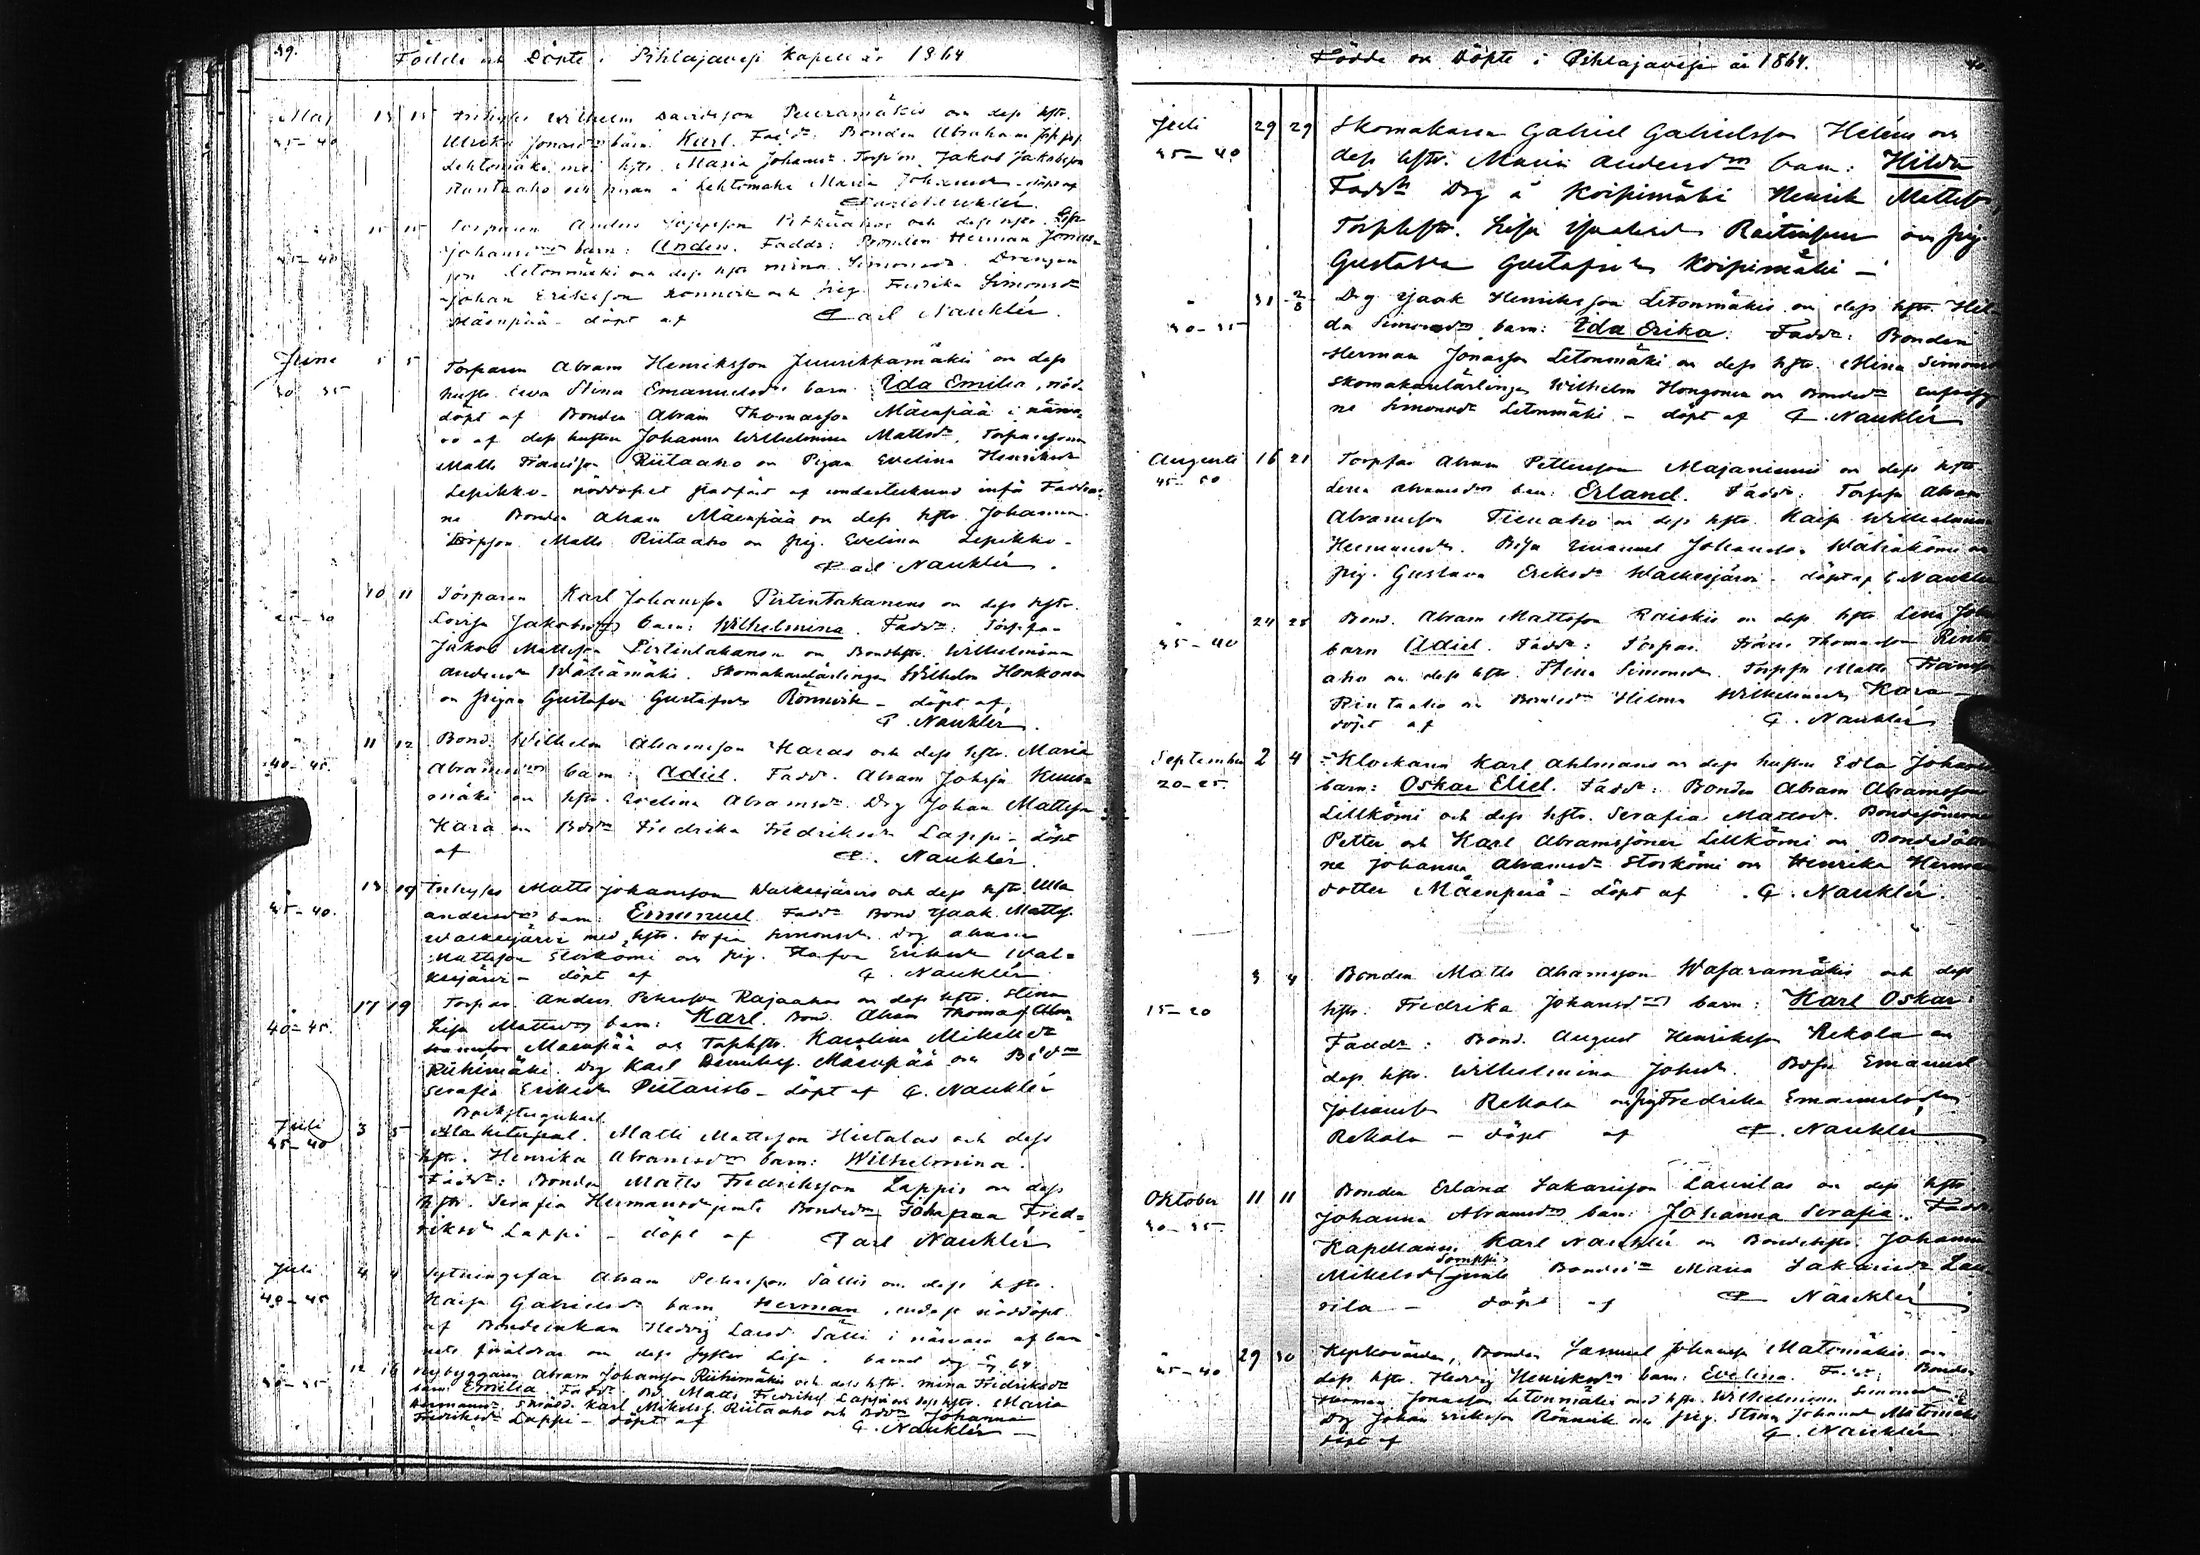 39.
Födde och Döpte i Pihlajavesi Kapell år 1864
Maj 13 15 Inhyses Wilhelm Davidsson Peuramäkis och dess hstr.
35-40 Ulrika Jonasdrs barn: Karl. Fadd: Bonden Abraham
Lehtomäki med hstr. Maria Johansd. Jakob Jakobsson
Rautaaho och pigan i Lehtomäki Maria Johansd - döpt af
Carl Nauklér.
15 15 Torparen Anders och dess hstr. Lisa
35-40 Johansdrs barn: Anders. Faddr: Bonden Herman Jonas-
son Letonmäki och dess hstr Mina Simonsdr. Drengen
Johan Eriksson Rönnvik och pig. Fredrika Simonsdr
Mäenpää - döpt af Carl Nauklér.
Junii 5 5 Torparen Abram Henriksson Juurikkamäkis och dess
30 35 hustr. Eva Stina Emanuelsdrs barn Ida Emilia, nöd-
döpt af Bonden Abram Thomasson Mäenpää i närva-
ro af dess hustru Johanna Wilhelmina Mattsdr, Torparesonen
Matts Fransson Riitaaho och Pigan Evelina Henriksdr
Lepikko - nöddopet stadfäst af undertecknad inför Faddrar-
ne Bonden Abram Mäenpää och dess hstr Johanna
Torpson Matts Riitaaho och pig. Evelina Lepikko -
Carl Nauklér.
" 10 11 Torparen Karl Johansson Pirtintakanens och dess hstr.
25-30 Lovisa Jakobsdrs barn: Wilhelmina. Faddr: Torppa-
Jakob Mattsson Pirtintakanen och Bondhstr. Wilhelmina
Andersdr Wäliämäki. Skomakarlärlingen Wilhelm Honkonen
och pigan Gustafva Gustafsdr Rönnvik - döpt af,
C. Nauklér.
" 11 12 Bond. Wilhelm Abramsson Karas och dess hstr. Maria
40-45. Abramsdrs barn: Adiel. Faddr. Abram Johsson
mäki och hstr. Evelina Abramsdr. Drg Johan Mattsson
Kara och Bdr Fredrika Fredriksdr Lappi - döpt
af C. Nauklér.
13 19 Inhyses Matts Johansson Walkeejärvis och dess hstr. Ulla
35-40. Andersdrs barn: Emanuel. Faddr Bond Isaak Mattss.
Walkeejärvi med hstr. Sofia Simonsdr. Drg Abram
Mattsson Storkömi och pig. Stafva Eriksdr Wal-
keejärvi - döpt af C. Nauklér
17 19 Torpar. Anders Petersson Rajaahos och dess hstr. Stina
40-45. Lisa Mattsdrs barn: Karl. Bond. Abram Thomass
Mäenpää och Torphstr. Karolina Mikelsdr
Riihimäki. Drg Karl Mäenpää och Bdr
Serafia Eriksdr Pirtaristo - döpt af C. Nauklér
Backstugukarl
Juli 3 5 Matti Mattsson Hietalas och dess
35-40 hstr. Henrika Abramsdrs barn: Wilhelmina.
Faddr: Bonden Matts Fredriksson Lappis och dess
hstr. Serafia Hermansdr jemte Bondedr Johanna Fred-
riksdr Lappi - döpt af Carl Nauklér
Juli 4 4 Sytningsfar Abram Petersson Sällis och dess hstr.
40-45 Kaisa Gabrielsdr barn Herman, endast nöddöpt
af Bondeenkan Hedvig Larsd. Sälli i närvaro af bar
nets föräldrar och dess syster Lisa.
" 12 16 Nybyggaren Abram Johansson Riihimäkis och dess hstr. Mina Fredriksdr
30-35 barn Emilia. Faddr. Bd. Matts Fredrikss. Lappi och dess hstr. Maria
Hermansdr. Karl Mikelss. Riitaaho och Bdr Johanna
Fredriksdr Lappi - döpt af C. Nauklér
Födde och Döpte i Pihlajavesi år 1864.
40
Juli 29 29 Skomakaren Gabriel Gabrielsson Heléns och
35-40 dess hstr. Maria Andersdrs barn: Hilda
Faddr Drg å Koipimäki Henrik Mattss
Torphstr. Lisa Isaaksdr Raitinpuu och pig
Gustava Gustafsdr Koipimäki -
" 31 2/8 Drg Isaak Henriksson Letonmäkis och dess hstr. Hel-
30-35 da Simonsdrs barn: Ida Erika: Faddr: Bonden
Herman Jonasson Letonmäki och dess hstr. Mina Simonsd
Skomakarelärlingen Wilhelm Hongonen och Bondedr
ne Simonsdr Letonmäki - döpt af C. Nauklér
Augusti 16 21 Torpar Abram Pettersson Majaniemis och dess hstr
45-50 Lena Abramsdrs barn: Erland. Faddr: Torpson Abram
Abramsson Tienaho och dess hstr. Kaisa Wilhelmina
Hermansdr. Emanuel Johansson Wäliäkömi och
pig. Gustava Eriksdr Walkeejärvi. döpt af C Nauklér
" 24 25 Bond. Abram Mattsson Raiskis och dess hstr Lena Joh
35-40 barn Adiel. Faddr: Torpar. Frans Thomasson Riita
aho och dess hstr. Stina Simonsdr. Torpson Matts Frans
Riitaaho och Bondedr Hilma Wilhelmsdr Kara -
döpt af C. Nauklér
September 2 4 Klockaren Karl Ahlmans och dess hustru Edla Johans
20-25 barn: Oskar Eliel. Faddr: Bonden Abram Abramsson
Lillkömi och dess hstr. Serafia Mattsdr. Bondesönerna
Petter och Karl Abramssöner Lillkömi och Bondedöttr
ne Johanna Abramsdr Storkömi och Henrika Herman
dotter Mäenpää - döpt af C. Nauklér.
3 4 Bonden Matts Abramsson Wasaramäkis och dess
15-20 hstr. Fredrika Johansdrs barn: Karl Oskar:
Faddr: Bond. August Henriksson Rekola och
dess hstr. Wilhelmina Johsdr. Bdsn Emanuel
Johansson Rekola och pig Fredrika Emanuelsdr
Rekola - döpt af C. Nauklér
Oktober 11 11 Bonden Erland Sakarisson Laurilas och dess hstr
30-35 Johanna Abramsdrs barn: Johanna Serafia. Fadd
Kapellanen Karl Nauklér och Bondehstr. Johanna
Mikelsdr jemte Bondedr Maria Sakarisdr Lau
rila - döpt af C Nauklér
" 29 30 Kyrkovärden, Bonden Samuel Johansson Matomäkis och
35-40 dess hstr. Hedvig Henriksdrs barn: Evelina. Faddr: Bonden
Herman Jonasson Letonmäki med hstr. Wilhelmina Simonsdr
Drg Johan Eriksson Rönnvik och pig. Stina Johansdr Matomäki
döpt af C. Nauklér.